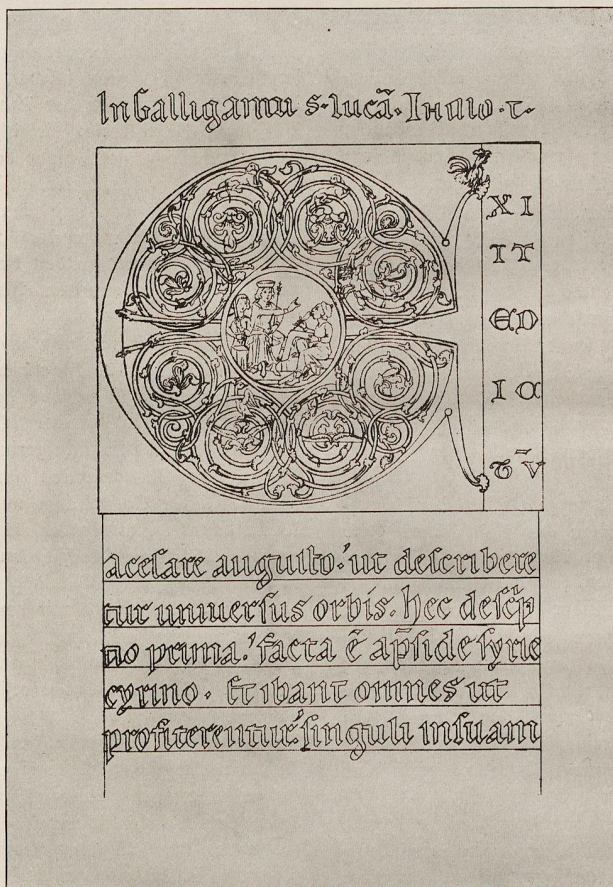 In Galliganttu s. lucã. In illo. t.
E XI
IT
ED
IC
TŪ
acesare augusto. ut describere
tur uniuersus orbis. hec desc̃p
tio prima. facta ē ap̃side syrie
cyrino. Et ibant omnes ut
profiterentur. singuli insuam